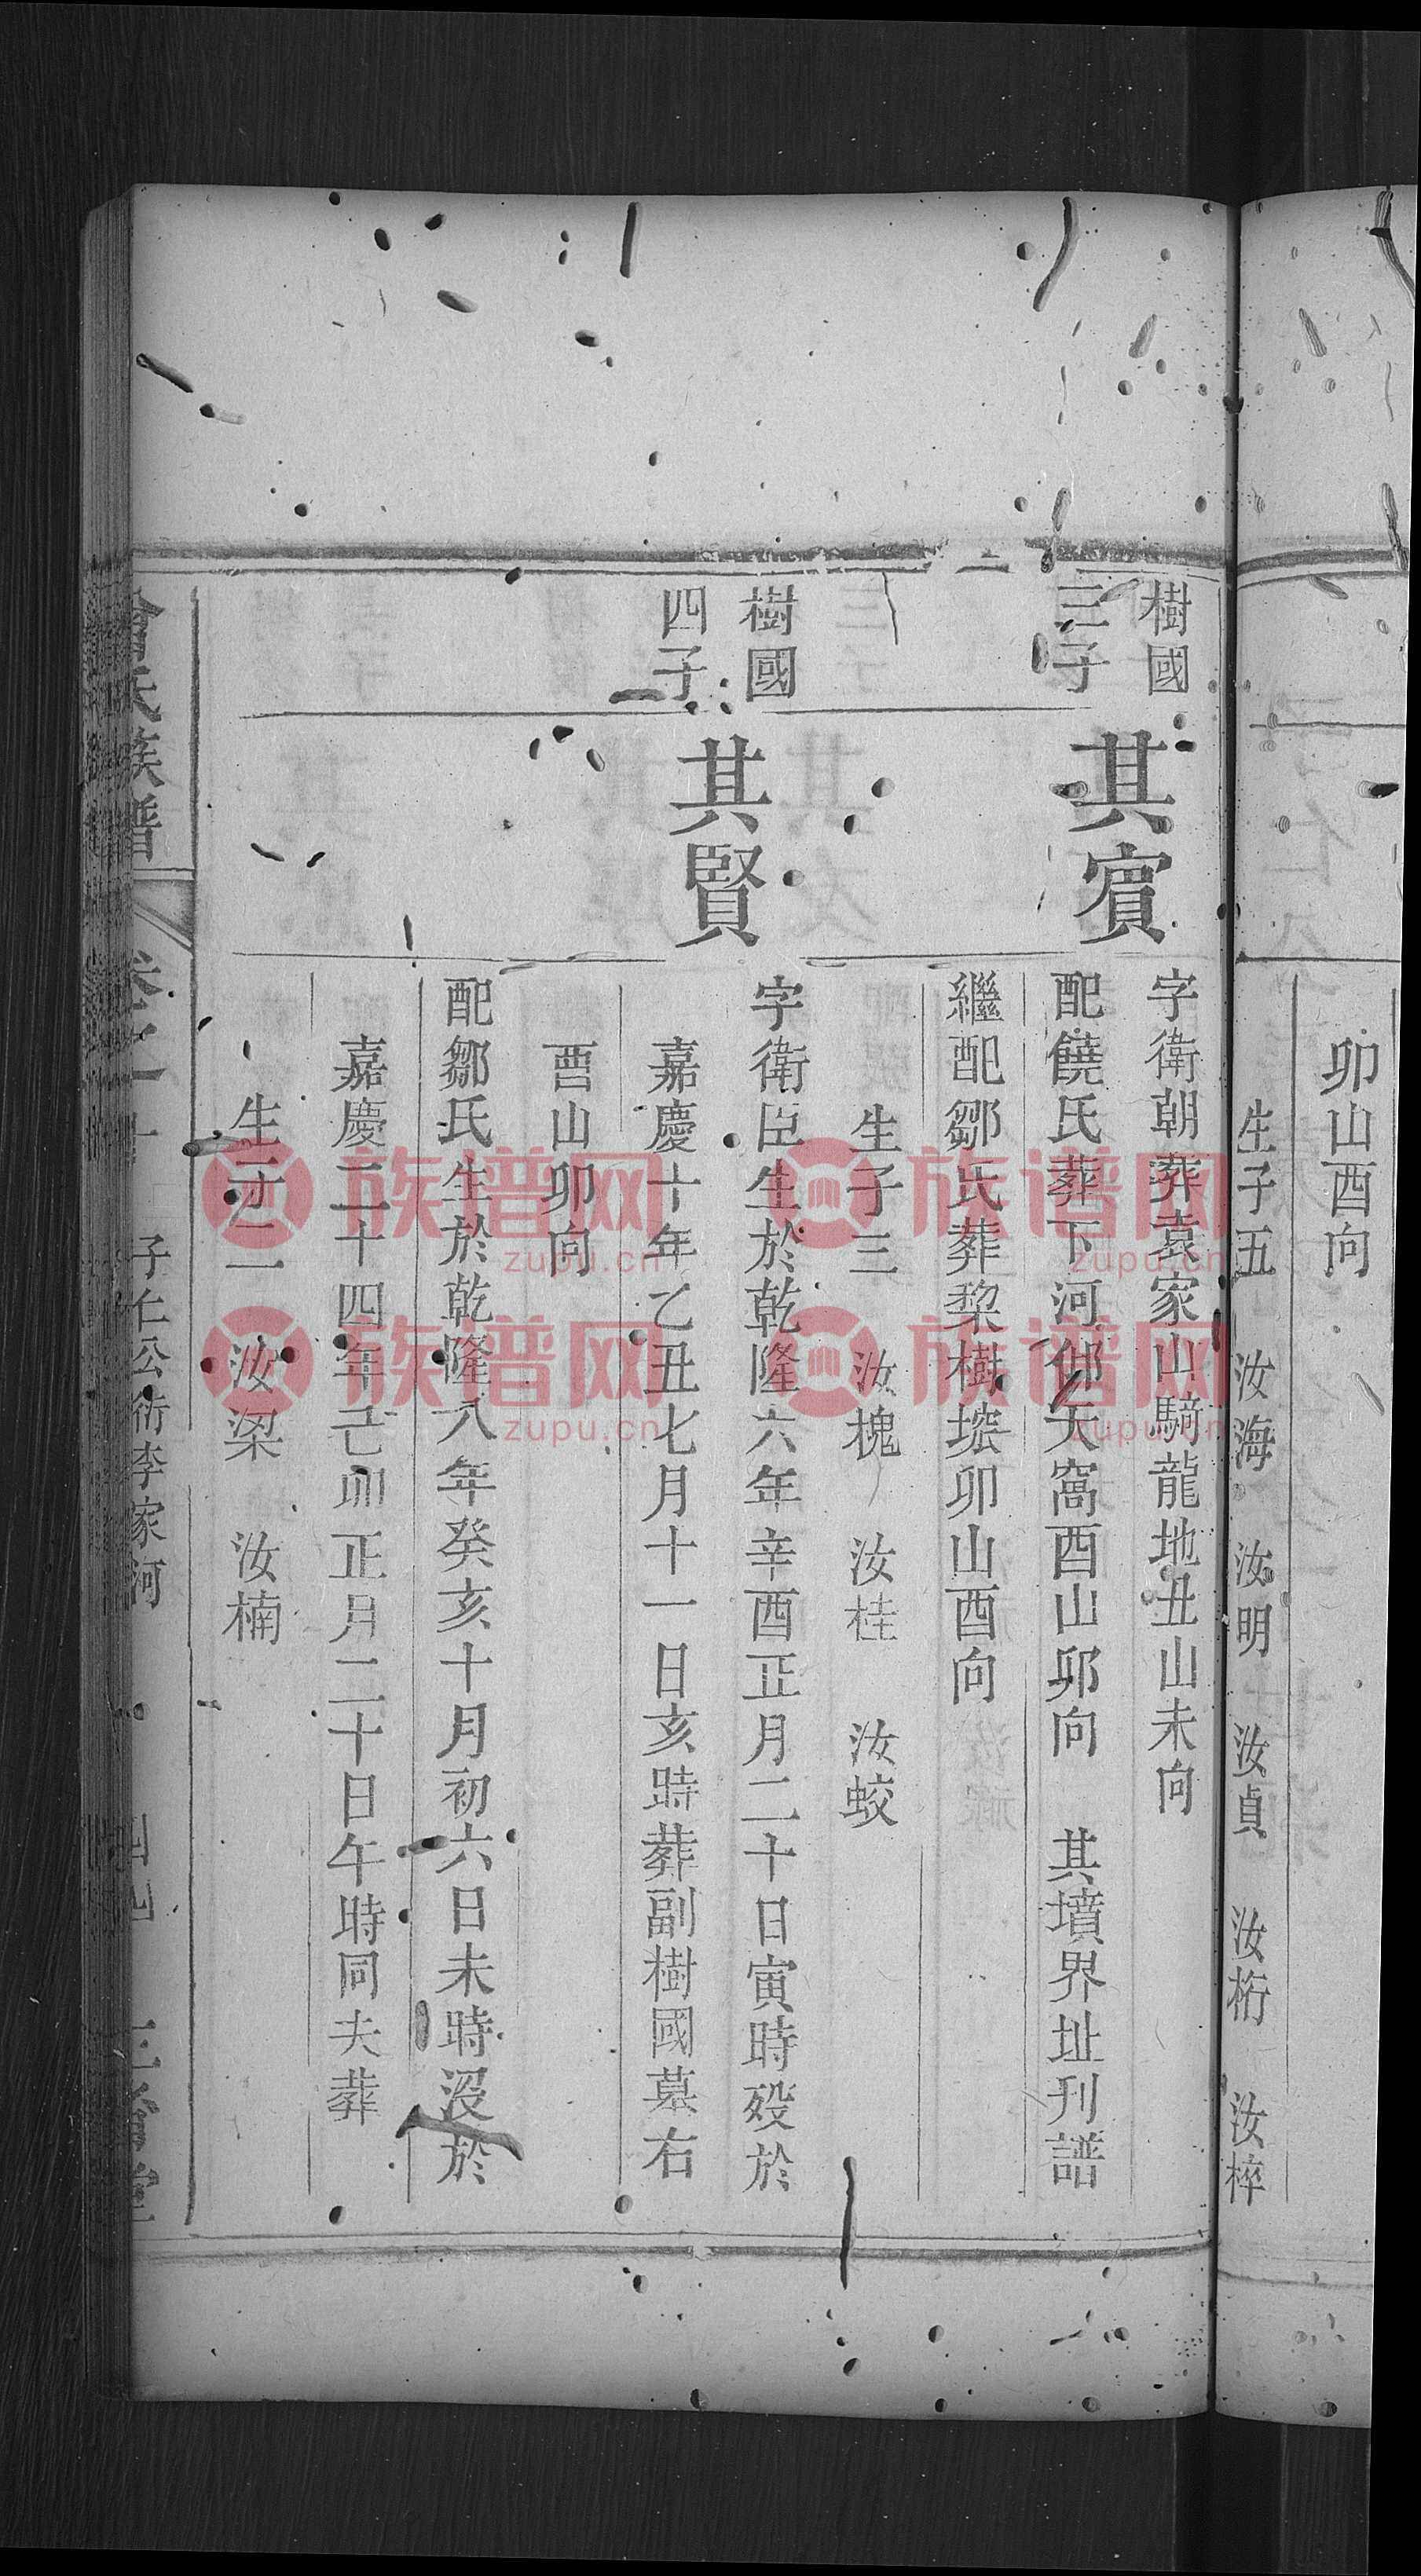 卯山酉向
生子五 汝海 汝明 汝貞 汝桁 汝梓
樹國
三子
其賓
字衛朝葬袁家山騎龍地丑山未向
配饒氏葬下河邊大窩酉山卯向 其墳界址刊譜
繼配鄒氏葬棃樹塆卯山酉向
生子三 汝槐 汝桂 汝蛟
樹國
四子
其賢
字衛臣生於乾隆六年辛酉正月二十日寅時歿於
嘉慶十年乙丑七月十一日亥時葬副樹國墓右
酉山卯向
配鄒氏生於乾隆八年癸亥十月初六日未時沒於
嘉慶二十四年己卯正月二十日午時同夫葬
生子二 汝梁 汝楠
氏族譜
子仁公衍李家河
族谱网
zupu.cn
族谱网
zupu.cn
族谱网
zupu.cn
族谱网
zupu.cn